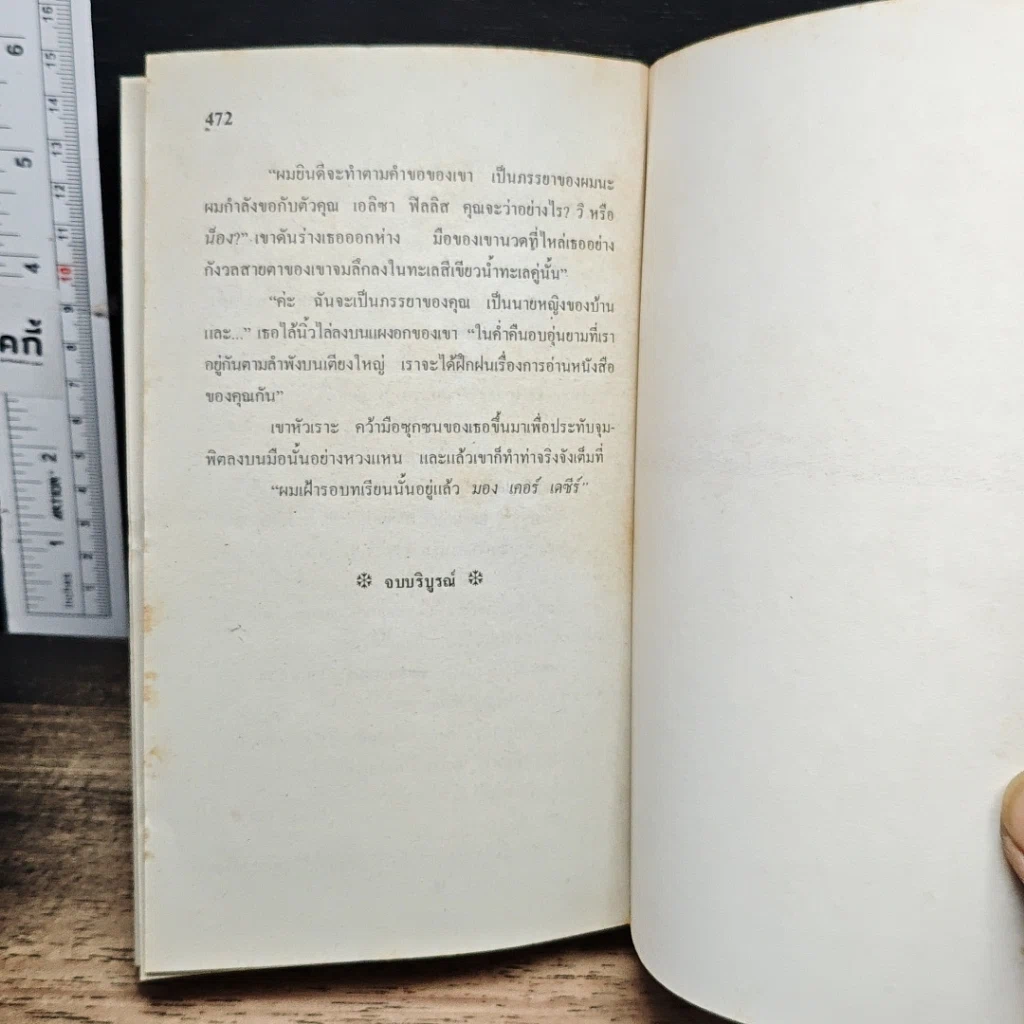 472
“ผมยินดีจะทำตามคำขอของเขา เป็นภรรยาของผมนะ
ผมกำลังขอกับตัวคุณ เอลิซา ฟิลลิส คุณจะว่าอย่างไร? วิ หรือ
น็อง?” เขาดันร่างเธอออกห่าง มือของเขานวดที่ไหล่เธออย่าง
กังวลสายตาของเขาจมลึกลงในทะเลสีเขียวน้ำทะเลคู่นั้น”
“ค่ะ ฉันจะเป็นภรรยาของคุณ เป็นนายหญิงของบ้าน
และ...” เธอไล้นิ้วไล่ลงบนแผงอกของเขา “ในค่ำคืนอบอุ่นยามที่เรา
อยู่กันตามลำพังบนเตียงใหญ่ เราจะได้ฝึกฝนเรื่องการอ่านหนังสือ
ของคุณกัน”
เขาหัวเราะ คว้ามือซุกซนของเธอขึ้นมาเพื่อประทับจุม-
พิตลงบนมือนั้นอย่างหวงแหน และแล้วเขาก็ทำท่าจริงจังเต็มที่
“ผมเฝ้ารอบทเรียนนั้นอยู่แล้ว มอง เคอร์ เดซีร์”
❄ จบบริบูรณ์ ❄
16
15
14
13
12
11
10
9
8
7
6
5
4
3
2
1
6
5
4
2
1
Inches
คกิ